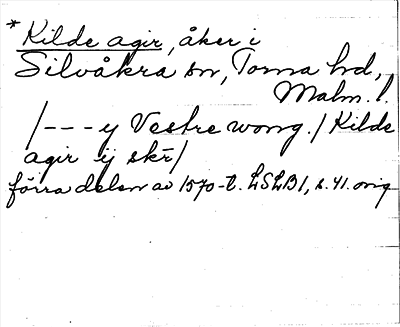 * Kilde agir, åker i
Silvåkra sn, Torna hd,
Malm. l.
/--- y Vestre wong. / Kilde
agir ij skr̄ /
förra delen av 1570-t. LSLB 1, s. 41. orig